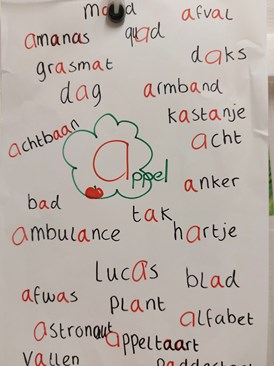 afval
ananas
quad
daks
grasmat
dag
armband
kastanje
achtbaan
acht
appel
anker
bad
tak
ambulance
hartje
Lucas
blad
afwas
plant
alfabet
astronaut
appeltaart
vallen